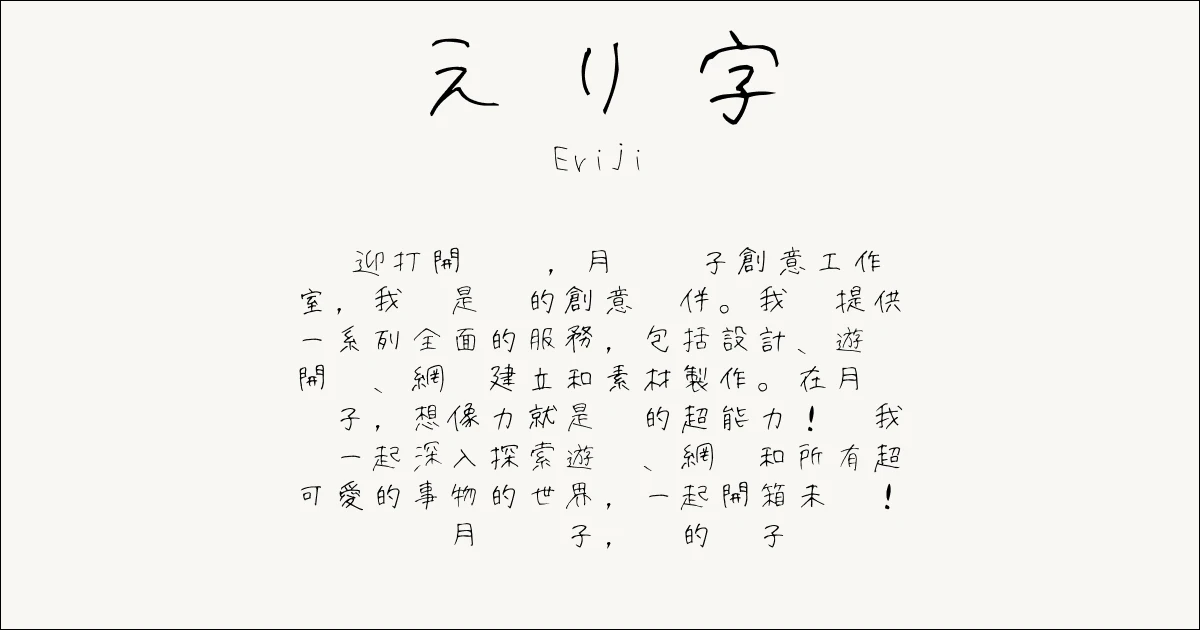 えり字
Eriji
迎打開 ，月 子創意工作
室，我 是 的創意 伴。我 提供
一系列全面的服務，包括設計、遊
開 、網 建立和素材製作。在月
子，想像力就是 的超能力！ 我
一起深入探索遊 、網 和所有超
可愛的事物的世界，一起開箱未 ！
月 子， 的 子